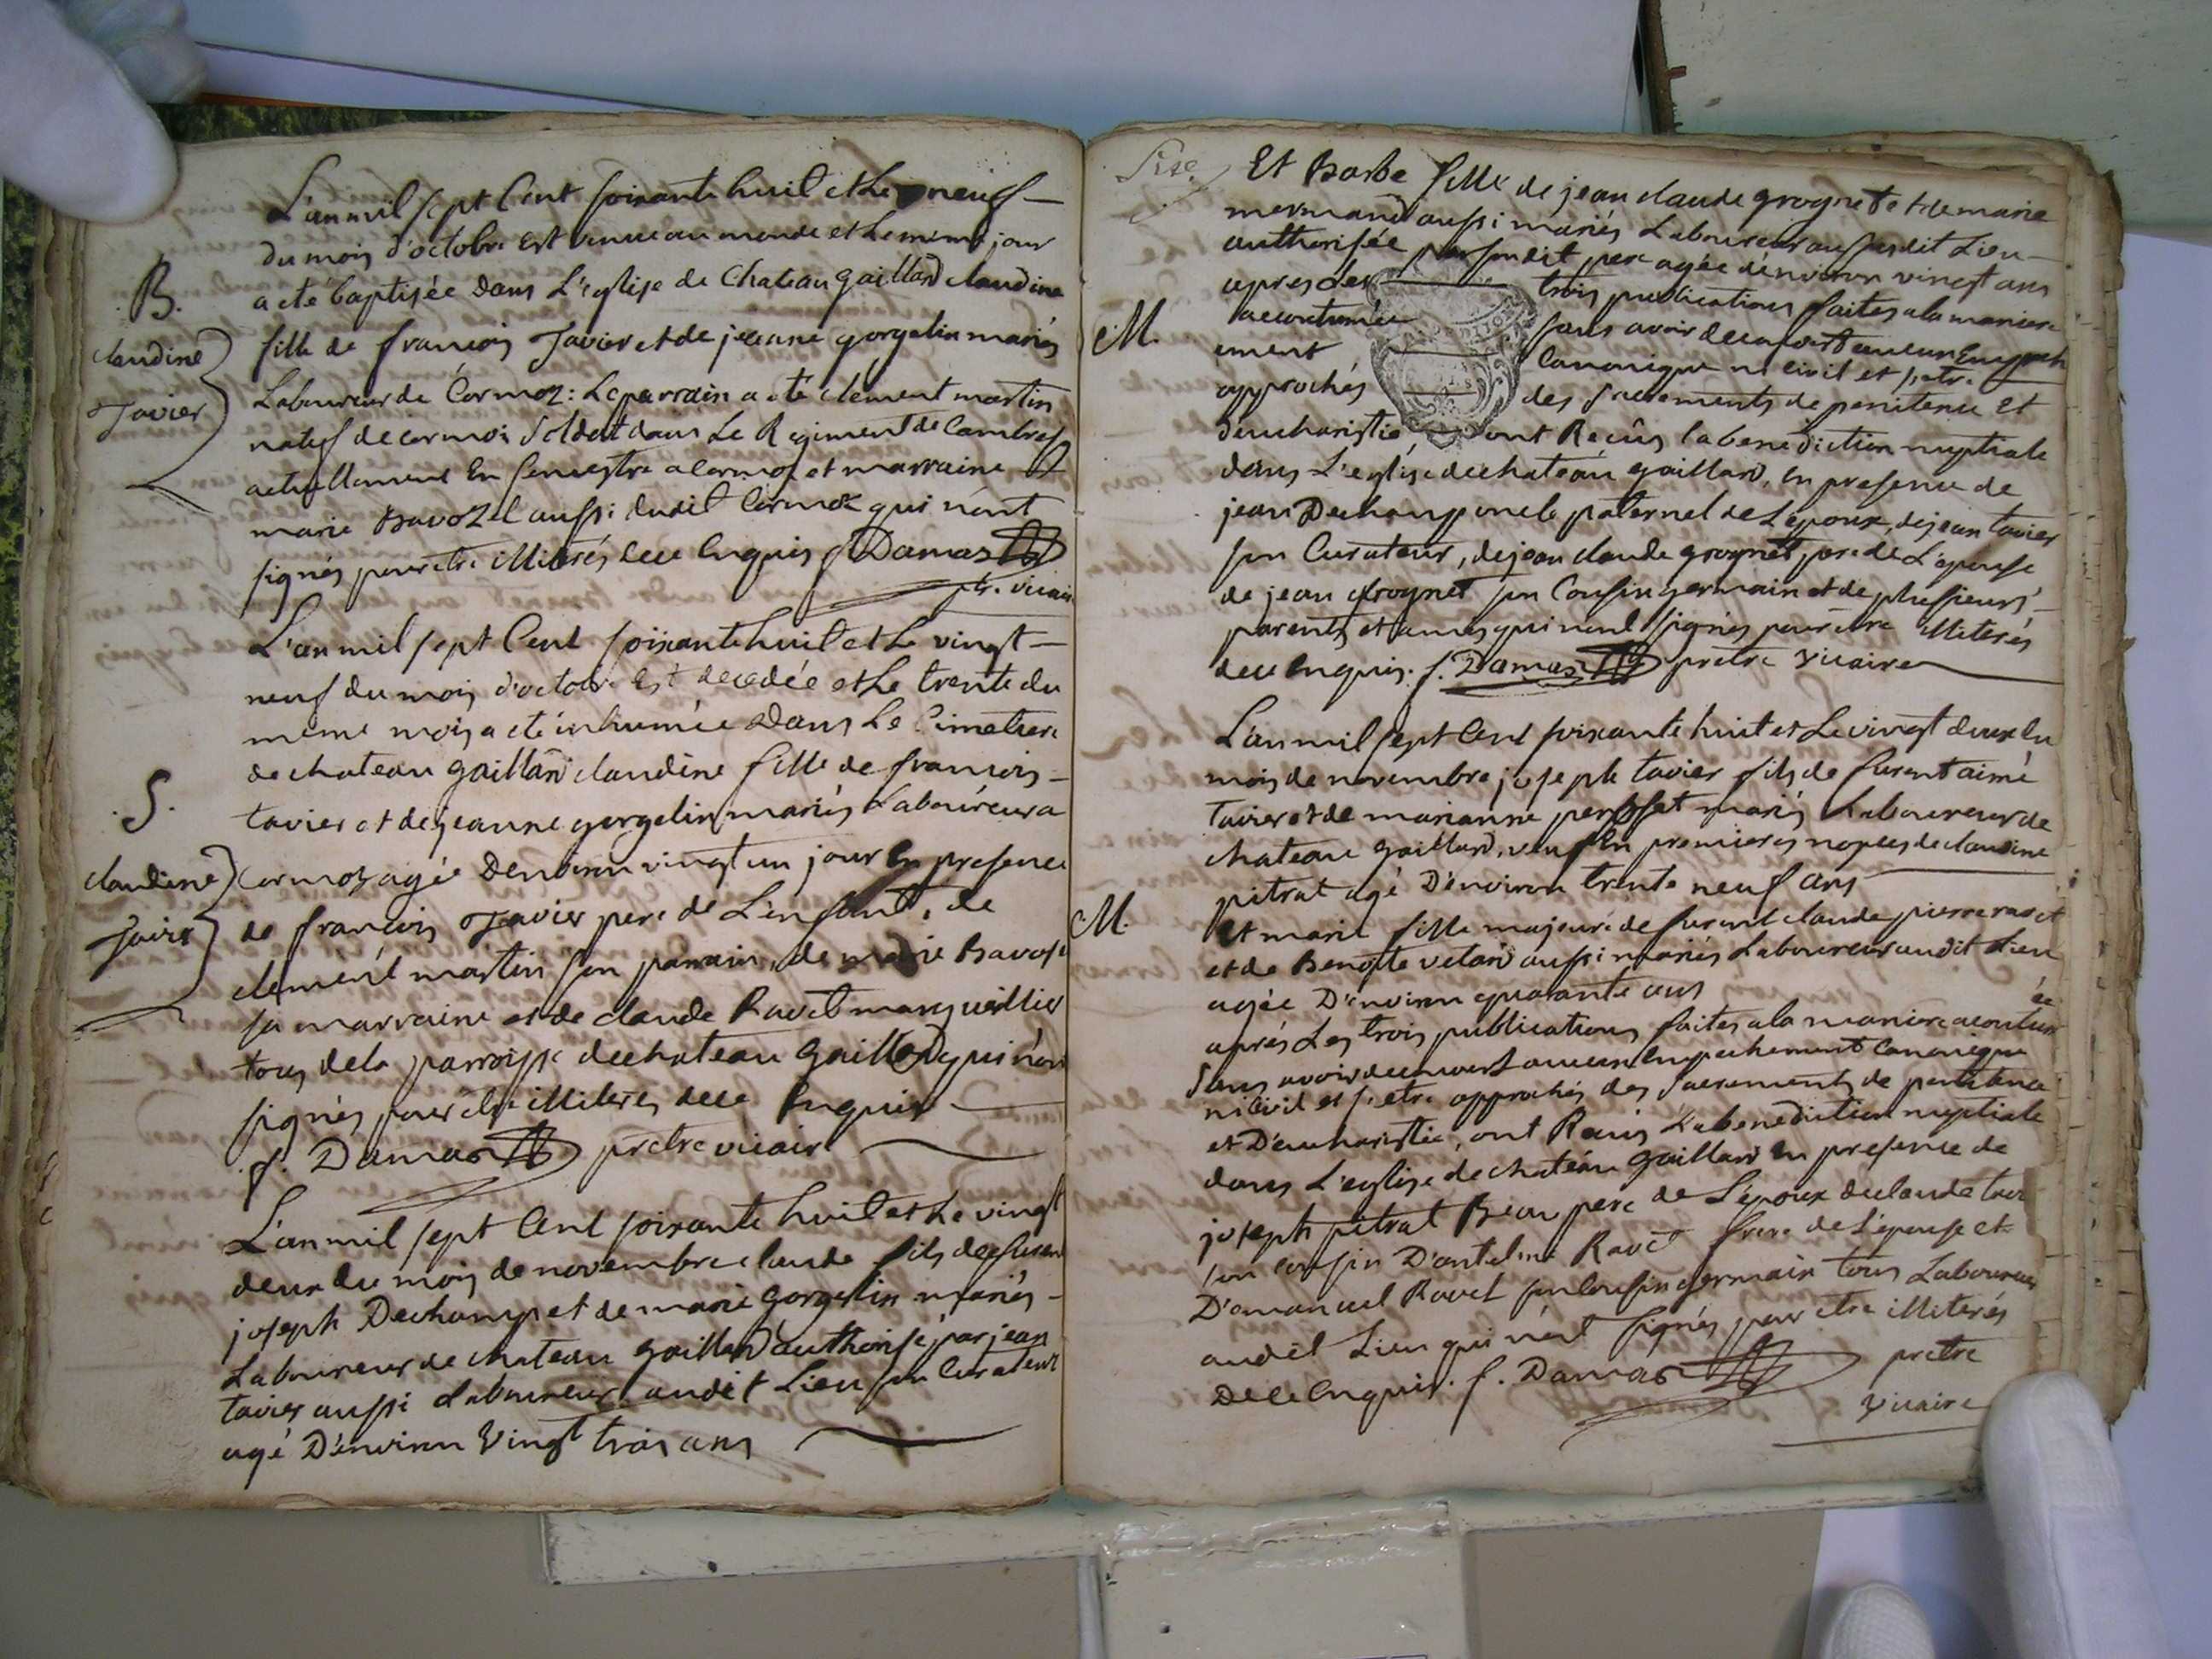 L'an mil sept Cent soixante huit et Le neuf
du mois d'octobre est venue au monde et Le même jour
B.
a eté baptisée dans L'eglise de Chateau gaillard claudine
claudine
fille de françois Tavier et de jeanne gorgelin mariés
Tavier
Laboureur de Cormoz: Le parrain a eté clement martin
natif de cormoz Soldat dans Le Regiment de Cambresy
actuellement En semestre a Cormoz et marraine
marie Bavozel aussi dudit Cormoz qui n'ont
signés pour etre illiterés de ce Enquis f. Damas
ptr. vicair
L'an mil sept Cent soixante huit et Le vingt
neuf du mois d'octobr. Est decedée et Le trente du
même mois a eté inhumée Dans Le Cimetiere
de chateau gaillard claudine fille de françois
S.
tavier et de jeanne gorgelin mariés Laboureur a
claudine
Cormoz agée D'environ vingt un jour En presence
Tavier
de françois Tavier pere de L'enfant, de
clement martin son parrain, de marie Bavose
sa marraine et de claude Ravet marguillier
tous de la parroisse de chateau Gaillard qui n'on
signés pour etre illiterés de ce Enquis
f. Damas prêtre vicair
L'an mil sept Cent soixante huit et Le vingt
deux du mois de novembre claude fils de furent
joseph Dechamp et de marie Gorgelin mariés
Laboureur de chateau gaillard authorisé par jean
tavier aussi Laboureur audit Lieu son Curateur
agé D'environ Vingt trois ans
Et Barbe fille de jean claude grognet et de marie
mermand aussi mariés Laboureur au susdit Lieu
authorisée par sondit pere agée d'environ vingt ans
apres Les trois publications faites a la maniere
M.
accoutumée sans avoir decouvert aucun Empech
ement Canonique ni civil et s'etre
approchés des sacrements de penitence Et
d'eucharistie ont Reçûs la benediction nuptiale
dans L'eglise de chateau gaillard, En presence de
jean Dechamp oncle paternel de L'epoux, de jean tavier
son Curateur, de jean claude grognet pere de L'epouse
de jean grognet son Cousin germain et de plusieurs
parents et amis qui n'ont signés pour etre illiterés
de ce Enquis. f. Damas prêtre Vicaire
L'an mil sept Cent soixante huit et Le vingt deux du
mois de novembre joseph tavier fils de furent aimé
Tavier et de marianne perosset mariés Laboureur de
chateau Gaillard, veuf En premieres nopces de claudine
pitrat agé D'environ trente neuf ans
M.
Et marie fille majeure de furent claude pierre ravet
et de Benoite vetard aussi mariés Laboureur audit Lieu
agée D'environ quarante ans
aprés Les trois publications faites a la maniere acoutum
ée
Sans avoir decouvert aucun Empechement Canonique
ni civil et s'etre approchés des sacrements de penitence
et D'eucharistie, ont Reçus La benediction nuptiale
dans L'eglise de chateau Gaillard En presence de
joseph pitrat Beau pere de L'epoux de claude tavi
son cousin D'antelme Ravet frere de L'epouse et
D'emanuel Ravet son Cousin germain tous Laboureur
audit Lieu qui n'ont signés pour etre illiterés
De ce Enquis. f. Damas prêtre
Vicaire